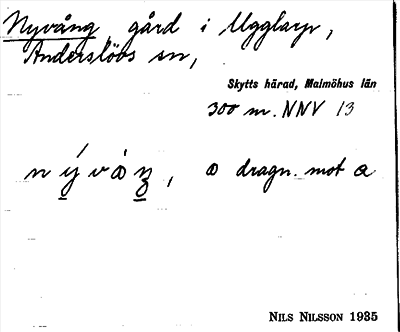 Nyvång, gård i Ugglarp,
Anderslövs sn,
Skytts härad, Malmöhus län
300 m. NNV 13
dragn. mot a
NILS NILSSON 1935